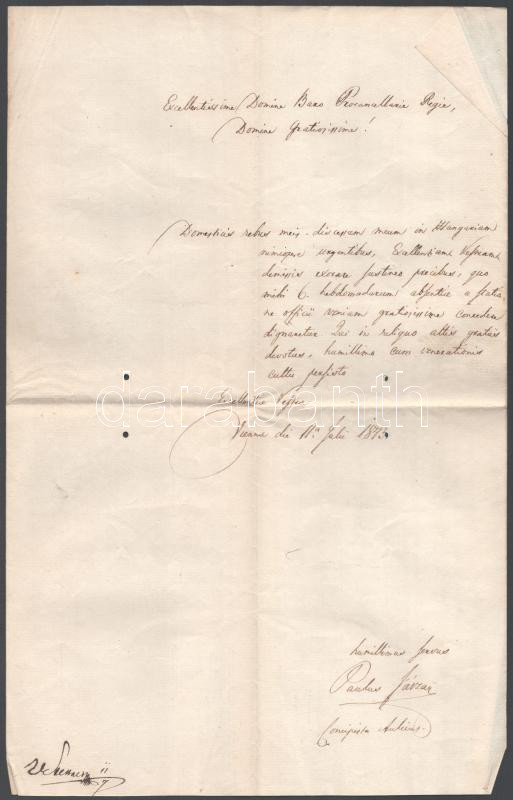 Excellentissime Domine Baro Procancellarie Regie,
Domine Gratiosissime!
Domesticis rebus meis discessum meum in Hungariam
nimiopere urgentibus, Excellentiam Vestram
demissis exorare sustineo precibus, quo
mihi 6. hebdomadarum absentiae a statio-
ne officii veniam gratiosissime concedere
dignaretur Qui in reliquo altis gratiis
devotus, humillimo cum venerationis
cultu persisto
Excellentiae Vestrae
darabanth
Vienna die 11a Julii 1813
humillimus servus
Paulus
Concipista Aulicus